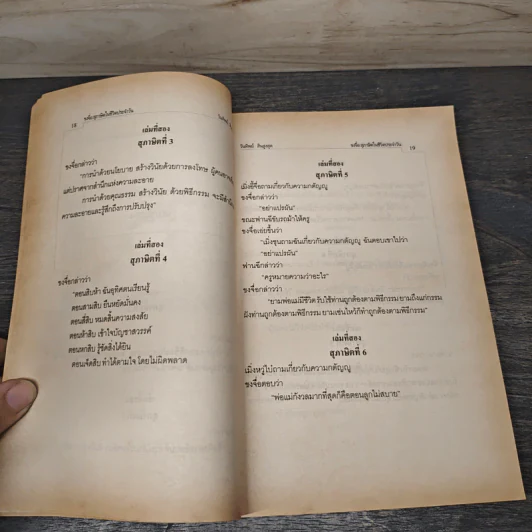 18
ขงจื่อ:สุภาษิตในชีวิตประจำวัน
เล่มที่สอง
สุภาษิตที่ 3
ขงจื่อกล่าวว่า
"การนำด้วยนโยบาย สร้างวินัยด้วยการลงโทษ
แต่ปราศจากสำนึกแห่งความละอาย
การนำด้วยคุณธรรม สร้างวินัย ด้วยพิธีกรรม จะมีสำนึก
ความละอายและรู้สึกถึงการปรับปรุง"
เล่มที่สอง
สุภาษิตที่ 4
ขงจื่อกล่าวว่า
"ตอนสิบห้า ฉันอุทิศตนเรียนรู้
ตอนสามสิบ ยืนหยัดมั่นคง
ตอนสี่สิบ หมดสิ้นความสงสัย
ตอนห้าสิบ เข้าใจบัญชาสวรรค์
ตอนหกสิบ รู้ชัดสิ่งได้ยิน
ตอนเจ็ดสิบ ทำได้ตามใจ โดยไม่ผิดพลาด
ขงจื่อ:สุภาษิตในชีวิตประจำวัน
19
เล่มที่สอง
สุภาษิตที่ 5
เมิ่งอี้ซื่อถามเกี่ยวกับความกตัญญู
ขงจื่อกล่าวว่า
"อย่าแปรผัน"
ขณะฟานฉีขับรถม้าให้ครู
ขงจื่อเอ่ยขึ้นว่า
"เมิ่งซุนถามฉันเกี่ยวกับความกตัญญู ฉันตอบเขาไปว่า
"อย่าแปรผัน"
ฟานฉีกล่าวว่า
"ครูหมายความว่าอะไร"
ขงจื่อกล่าวว่า
"ยามพ่อแม่มีชีวิต รับใช้ท่านถูกต้องตามพิธีกรรม ยามถึงแก่กรรม
ฝังท่านถูกต้องตามพิธีกรรม ยามเซ่นไหว้ก็ทำถูกต้องตามพิธีกรรม"
เล่มที่สอง
สุภาษิตที่ 6
เมิ่งหวู่ไปถามเกี่ยวกับความกตัญญู
ขงจื่อตอบว่า
"พ่อแม่กังวลมากที่สุดก็คือตอนลูกไม่สบาย"